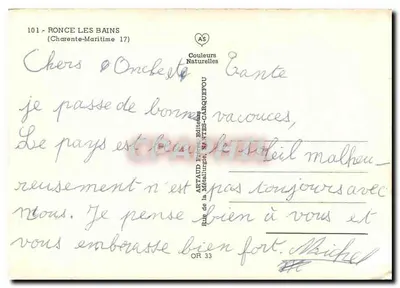 101.- RONCE LES BAINS
(Charente-Maritime 17)
AS
Couleurs
Naturelles
Chers Oncle et Tante
je passe de bonnes vacances,
Le pays est beau le soleil malheu-
reusement n'est pas toujours avec
nous. Je pense bien à vous et
vous embrasse bien fort. Michel
ARTAUD Frères, Editeurs
Rue de la Métallurgie, NANTES-CARQUEFOU
OR 33